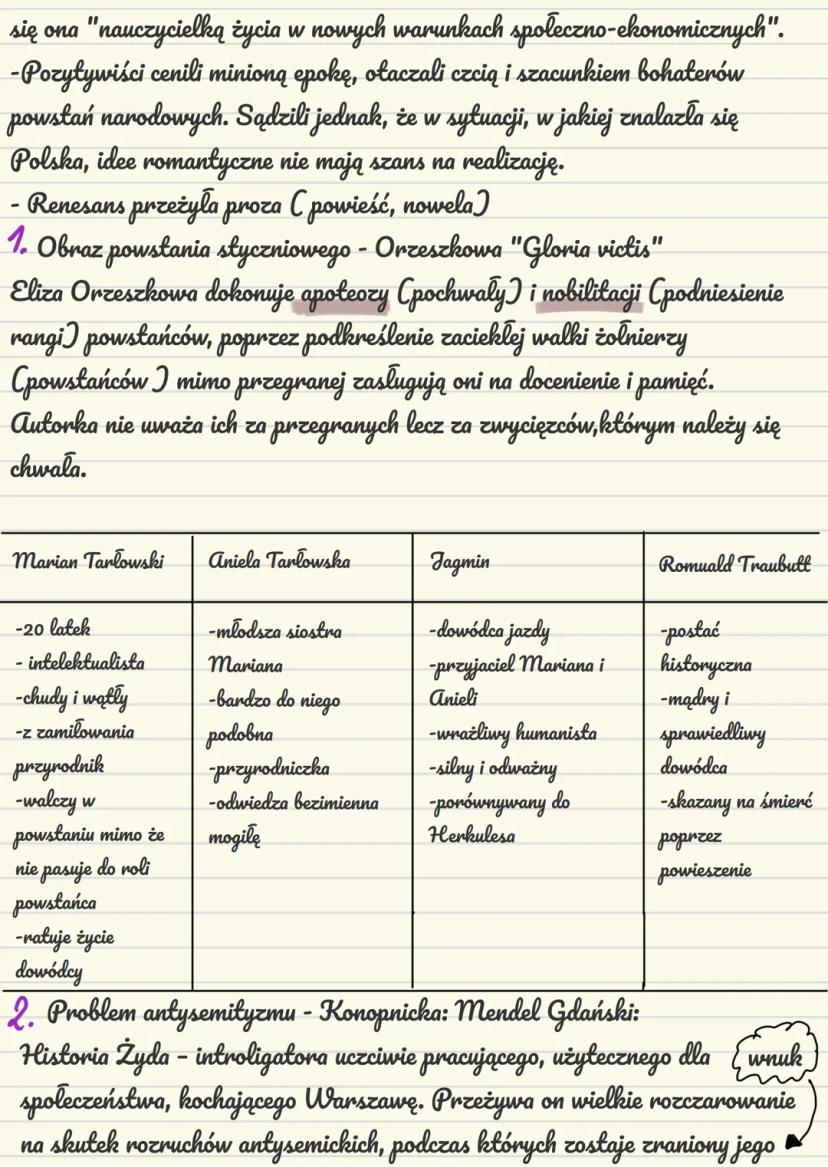 się ona "nauczycielką życia w nowych warunkach społeczno-ekonomicznych".
-Pozytywiści cenili minioną epokę, otaczali czcią i szacunkiem bohaterów
powstań narodowych. Sądzili jednak, że w sytuacji, w jakiej znalazła się
Polska, idee romantyczne nie mają szans na realizację.
- Renesans przeżyła proza ( powieść, nowela)
1. Obraz powstania styczniowego - Orzeszkowa "Gloria victis"
Eliza Orzeszkowa dokonuje apoteozy (pochwały) i nobilitacji (podniesienie
rangi) powstańców, poprzez podkreślenie zaciekłej walki żołnierzy
(powstańców ) mimo przegranej zasługują oni na docenienie i pamięć.
Autorka nie uważa ich za przegranych lecz za zwycięzców,którym należy się
chwała.
Marian Tarłowski
-20 latek
- intelektualista
-chudy i wątły
-z zamiłowania
przyrodnik
-walczy w
powstaniu mimo że
nie pasuje do roli
powstańca
-ratuje życie
dowódcy
Aniela Tarłowska
-młodsza siostra
Mariana
-bardzo do niego
podobna
-przyrodniczka
-odwiedza bezimienna
mogiłę
Jagmin
-dowódca jazdy
-przyjaciel Mariana i
Anieli
-wrażliwy humanista
-silny i odważny
-porównywany do
Herkulesa
Romuald Traubutt
-postać
historyczna
-mądry i
sprawiedliwy
dowódca
-skazany na śmierć
poprzez
powieszenie
2. Problem antysemityzmu - Konopnicka: Mendel Gdański:
Historia Żyda – introligatora uczciwie pracującego, użytecznego dla
wnuk
społeczeństwa, kochającego Warszawę. Przeżywa on wielkie rozczarowanie
na skutek rozruchów antysemickich, podczas których zostaje zraniony jego